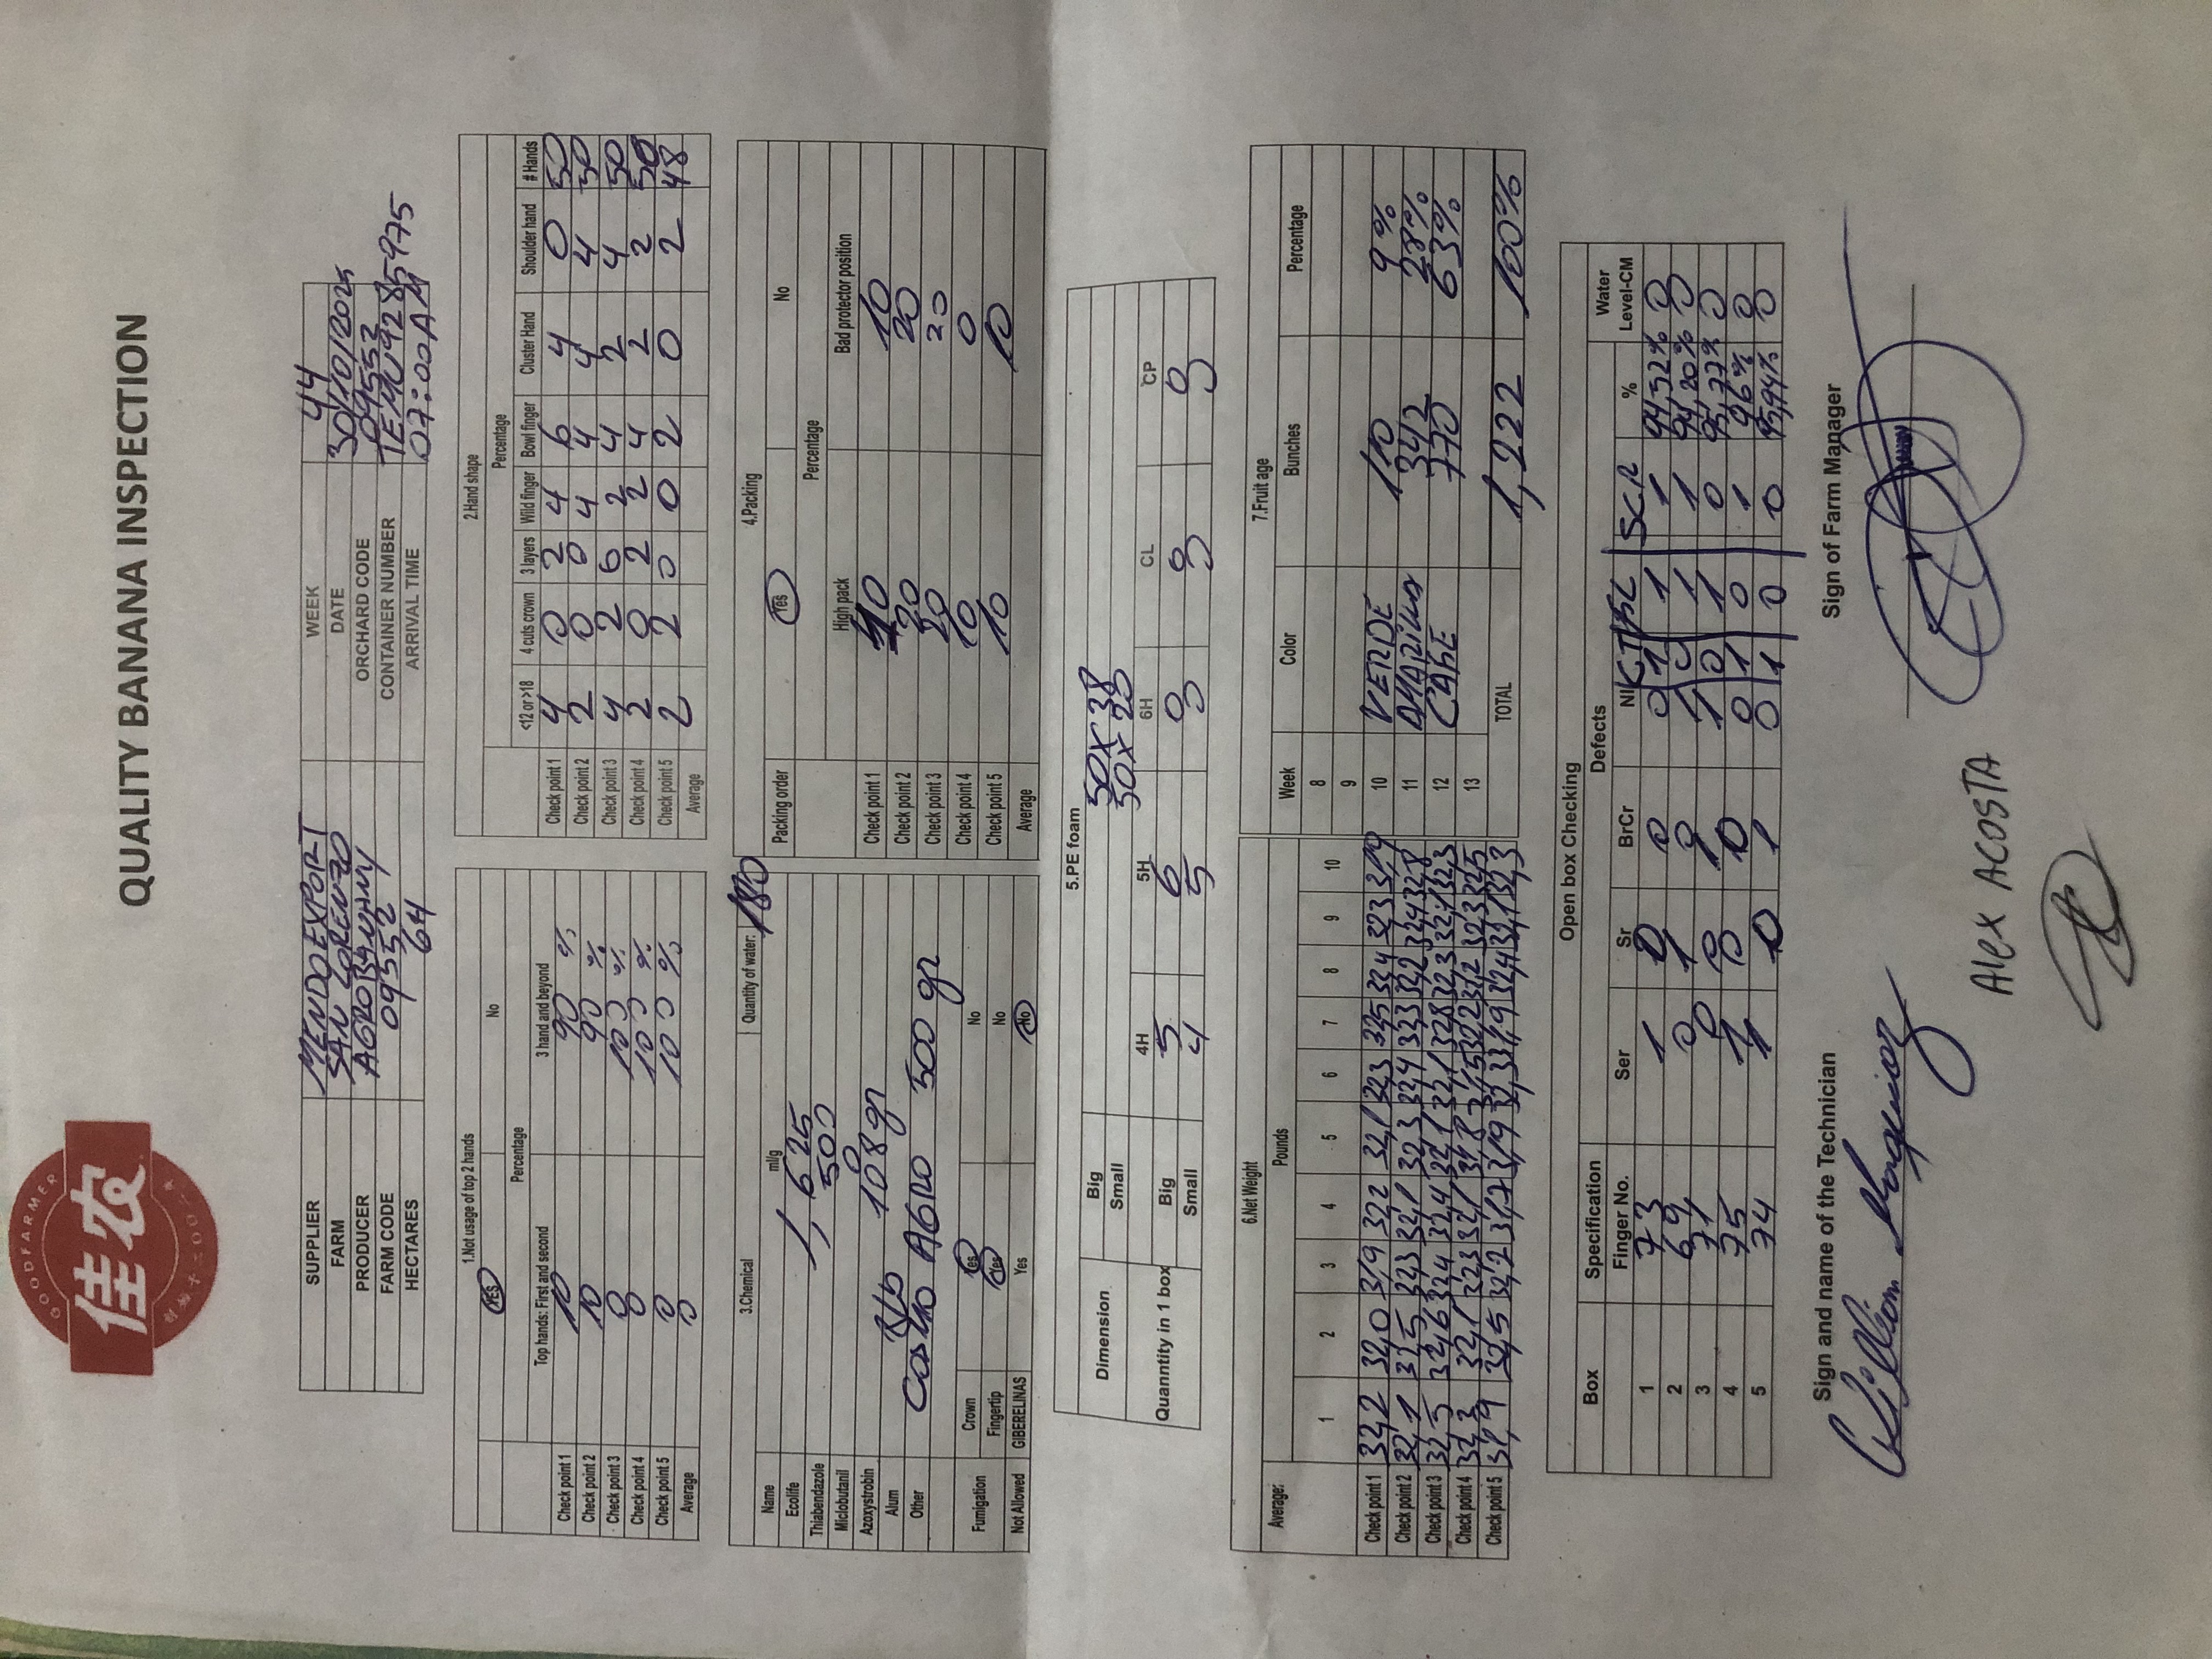 GOODFARMER
佳农
创始于二〇〇二年
QUALITY BANANA INSPECTION
SUPPLIER MENDOEXPORT WEEK 44
FARM SAN LORENZO DATE 30/10/2024
PRODUCER AGROBANANY ORCHARD CODE 09552
FARM CODE 09552 CONTAINER NUMBER TEMU9285975
HECTARES 64 ARRIVAL TIME 07:00AM
1.Not usage of top 2 hands
YES No
Percentage
Top hands: First and second 3 hand and beyond
Check point 1 10 90 %
Check point 2 10 90 %
Check point 3 0 100 %
Check point 4 0 100 %
Check point 5 0 100 %
Average 0
2.Hand shape
Percentage
<12 or >18 4 cuts crown 3 layers Wild finger Bowl finger Cluster Hand Shoulder hand # Hands
Check point 1 4 0 2 4 6 4 0 50
Check point 2 2 0 0 4 4 4 4 50
Check point 3 4 2 0 2 4 2 4 50
Check point 4 2 0 2 2 4 2 2 50
Check point 5 2 2 0 0 2 0 2 48
Average
3.Chemical Quantity of water: 180
Name ml/g
Ecolife 1,625
Thiabendazole 500
Miclobutanil 0
Azoxystrobin 108gr
Alum
Other AGRO 500 gr
Fumigation Crown Yes No
Fingertip Yes No
Not Allowed GIBERELINAS Yes No
4.Packing
Packing order Yes No
Percentage
High pack Bad protector position
Check point 1 10 10
Check point 2 20 20
Check point 3 20 20
Check point 4 10 0
Check point 5 10 10
Average
5.PE foam
Dimension Big 50x38
Small 50x20
4H 5H 6H CL CP
Quanntity in 1 box Big 5 6 0 0 0
Small 4 5 0 0 0
6.Net Weight
Average: Pounds
1 2 3 4 5 6 7 8 9 10
Check point 1 32,2 32,0 31,9 32,2 32,1 32,3 32,5 32,4 32,3 31,9
Check point 2 32,1 32,5 32,3 32,1 32,3 32,4 32,3 32,2 32,4 32,8
Check point 3 32,5 32,6 32,4 32,4 32,1 32,1 32,8 32,3 32,1 32,3
Check point 4 32,3 32,1 32,3 32,1 31,8 31,5 32,2 31,2 32,3 32,5
Check point 5 31,9 32,5 32,2 31,7 31,9 32,3 31,9 32,4 32,1 32,3
7.Fruit age
Week Color Bunches Percentage
8
9
10 VERDE 110 9%
11 AMARILLA 342 28%
12 CAFE 770 63%
13
TOTAL 1,222 100%
Open box Checking
Box Specification Defects Water
Finger No. Ser Sr BrCr NI CT FL SCR % Level-CM
1 73 1 0 0 0 1 1 1 94,52% 0
2 69 0 1 0 1 0 1 1 94,20% 0
3 71 0 0 1 1 0 1 0 95,77% 0
4 75 1 0 0 0 1 0 1 96% 0
5 74 1 0 1 0 1 0 0 95,94% 0
Sign and name of the Technician
Sign of Farm Manager
William
Alex ACOSTA